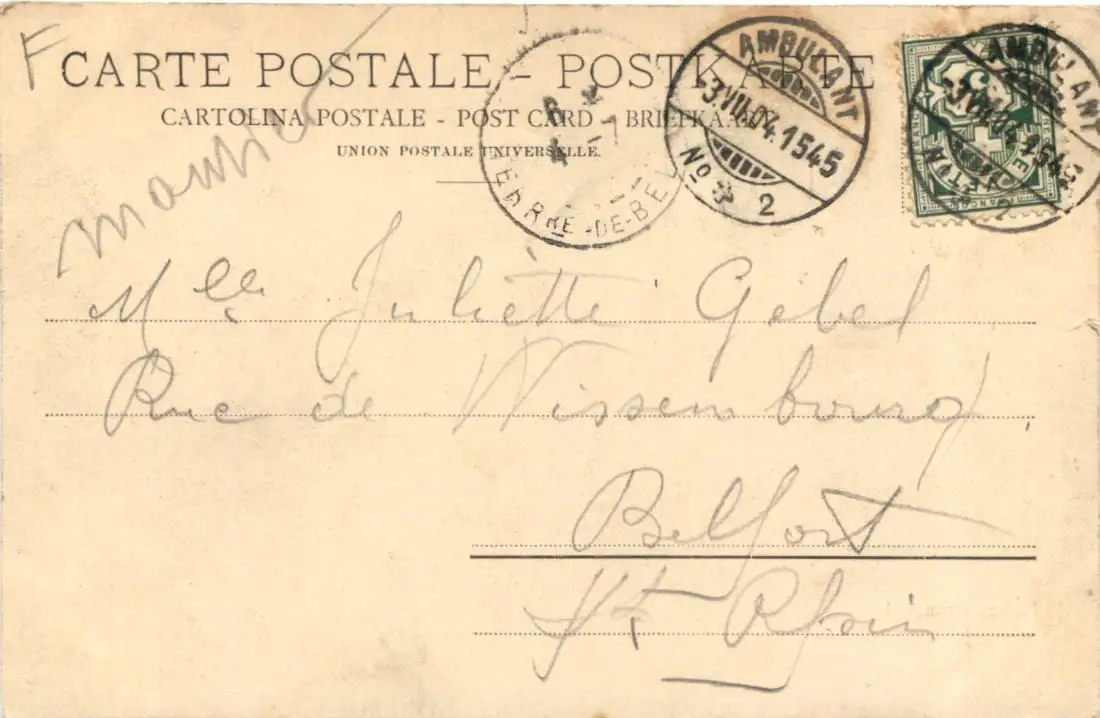 F
CARTE POSTALE - POSTKARTE
CARTOLINA POSTALE - POST CARD - BRIEFKAART
UNION POSTALE UNIVERSELLE.
AMBULANT
-3.VII.04.1545
No 2
AMBULANT
-3.VII.04.1545
No 2
-DE-BE
Mlle Juliette Gebel
Rue de Wissembourg
Belfort
Ht Rhin